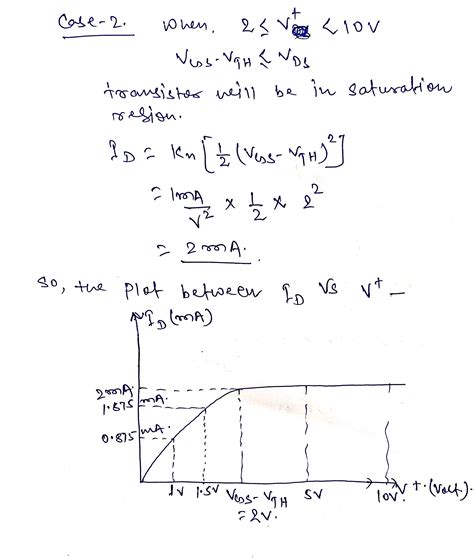 Case-2. when, 2 ≤ V⁺ < 10V
V_GS - V_TH ≤ V_DS
transistor will be in saturation
region.
I_D = Kn [ 1/2 (V_GS - V_TH)² ]
= 1mA/V² × 1/2 × 2²
= 2mA.
So, the plot between I_D Vs V⁺ -
I_D (mA)
2mA.
1.875 mA.
0.875 mA.
1V 1.5V V_GS - V_TH 5V 10V. V⁺ (Volt).
= 2V.